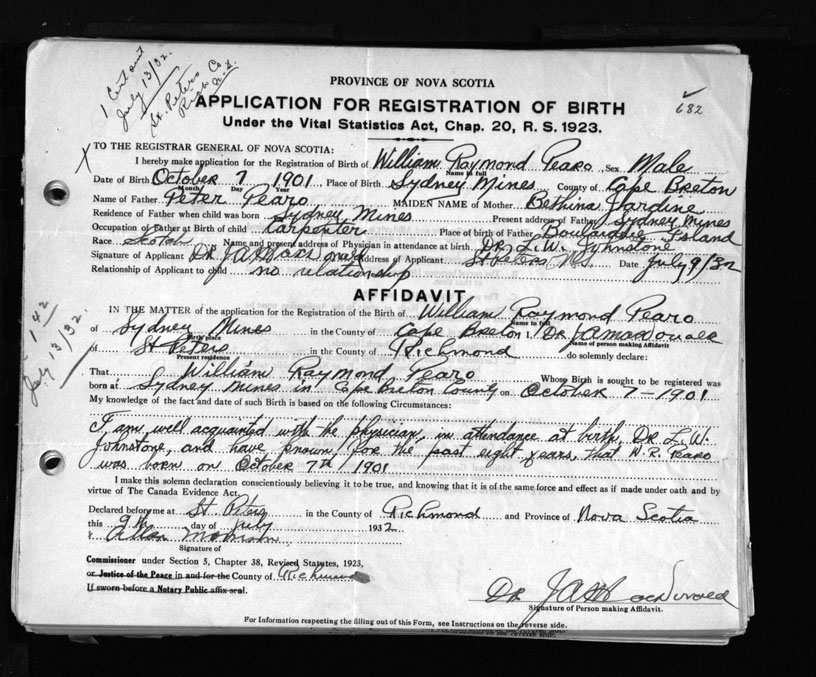 1 Cert out
July 13/32.
St. Peters
Rich Co.
N.S.
PROVINCE OF NOVA SCOTIA
APPLICATION FOR REGISTRATION OF BIRTH
682
Under the Vital Statistics Act, Chap. 20, R. S. 1923.
X TO THE REGISTRAR GENERAL OF NOVA SCOTIA:
I hereby make application for the Registration of Birth of William Raymond Pearo Sex Male
Name in full
Date of Birth October 7 1901 Place of Birth Sydney Mines County of Cape Breton
Month Day Year
Name of Father Peter Pearo MAIDEN NAME of Mother Bethina Jardine
Residence of Father when child was born Sydney Mines Present address of Father Sydney Mines
Occupation of Father at Birth of child Karpenter Place of birth of Father Boulardrie Island
Race Scotch Name and present address of Physician in attendance at birth DR L. W. Johnstone
Signature of Applicant DR J A MacDonald Address of Applicant St Peters N.S. Date July 9/32
Relationship of Applicant to child no relationship
AFFIDAVIT
142
July 13/32.
IN THE MATTER of the application for the Registration of the Birth of William Raymond Pearo
Name in full
of Sydney Mines in the County of Cape Breton I, DR J A MacDonald
Birth place Name of person making Affidavit
of St Peters in the County of Richmond do solemnly declare:
Present residence
That William Raymond Pearo Whose Birth is sought to be registered was
born at Sydney Mines in Cape Breton County on October 7-1901
My knowledge of the fact and date of such Birth is based on the following Circumstances:
I am well acquainted with the physician, in attendance at birth, DR L. W.
Johnstone, and have known, for the past eight years, that W. R. Pearo
was born on October 7th/1901
I make this solemn declaration conscientiously believing it to be true, and knowing that it is of the same force and effect as if made under oath and by
virtue of The Canada Evidence Act.
Declared before me at St. Peters in the County of Richmond and Province of Nova Scotia
this 9th day of July 1932
Allan
Signature of
Commissioner under Section 5, Chapter 38, Revised Statutes, 1923,
or Justice of the Peace in and for the County of Richmond
If sworn before a Notary Public affix seal.
DR J A MacDonald
Signature of Person making Affidavit.
For Information respecting the filling out of this Form, see Instructions on the reverse side.